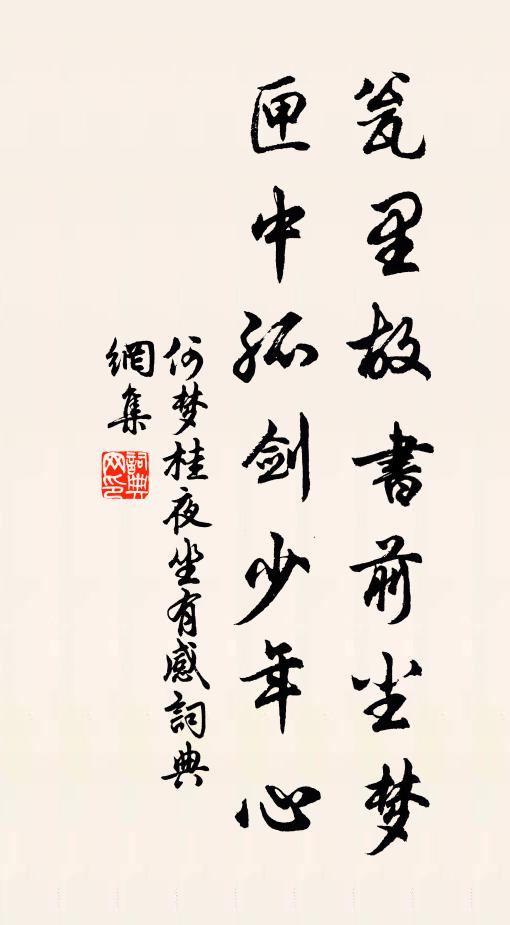 瓮里故书前尘梦
匣中孤剑少年心
何梦桂夜坐有感詞典
網集
詞典網印